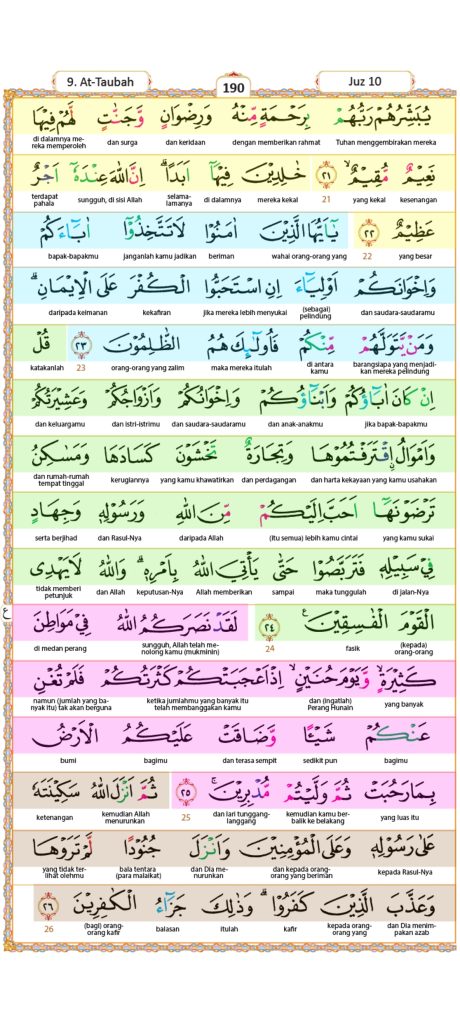 9. At-Taubah 190 Juz 10
يُبَشِّرُهُمْ رَبُّهُمْ بِرَحْمَةٍ مِّنْهُ وَرِضْوَانٍ وَّجَنّٰتٍ لَّهُمْ فِيْهَا
Tuhan menggembirakan mereka dengan memberikan rahmat dan keridaan dan surga di dalamnya mereka memperoleh
نَعِيْمٌ مُّقِيْمٌۙ ٢١ خٰلِدِيْنَ فِيْهَآ اَبَدًاۗ اِنَّ اللّٰهَ عِنْدَهٗٓ اَجْرٌ
kesenangan yang kekal 21 mereka kekal di dalamnya selama-lamanya sungguh, di sisi Allah terdapat pahala
عَظِيْمٌ ٢٢ يٰٓاَيُّهَا الَّذِيْنَ اٰمَنُوْا لَا تَتَّخِذُوْٓا اٰبَاۤءَكُمْ
yang besar 22 wahai orang-orang yang beriman janganlah kamu jadikan bapak-bapakmu
وَاِخْوَانَكُمْ اَوْلِيَاۤءَ اِنِ اسْتَحَبُّوا الْكُفْرَ عَلَى الْاِيْمَانِۗ
dan saudara-saudaramu (sebagai) pelindung jika mereka lebih menyukai kekafiran daripada keimanan
وَمَنْ يَّتَوَلَّهُمْ مِّنْكُمْ فَاُولٰۤىِٕكَ هُمُ الظّٰلِمُوْنَ ٢٣ قُلْ
barangsiapa yang menjadikan mereka pelindung di antara kamu maka mereka itulah orang-orang yang zalim 23 katakanlah
اِنْ كَانَ اٰبَاۤؤُكُمْ وَاَبْنَاۤؤُكُمْ وَاِخْوَانُكُمْ وَاَزْوَاجُكُمْ وَعَشِيْرَتُكُمْ
jika bapak-bapakmu dan anak-anakmu dan saudara-saudaramu dan istri-istrimu dan keluargamu
وَاَمْوَالُ ۨاقْتَرَفْتُمُوْهَا وَتِجَارَةٌ تَخْشَوْنَ كَسَادَهَا وَمَسٰكِنُ
dan harta kekayaan yang kamu usahakan dan perdagangan yang kamu khawatirkan kerugiannya dan rumah-rumah tempat tinggal
تَرْضَوْنَهَآ اَحَبَّ اِلَيْكُمْ مِّنَ اللّٰهِ وَرَسُوْلِهٖ وَجِهَادٍ
yang kamu sukai (itu semua) lebih kamu cintai daripada Allah dan Rasul-Nya serta berjihad
فِيْ سَبِيْلِهٖ فَتَرَبَّصُوْا حَتّٰى يَأْتِيَ اللّٰهُ بِاَمْرِهٖۗ وَاللّٰهُ لَا يَهْدِى
di jalan-Nya maka tunggulah sampai Allah memberikan keputusan-Nya dan Allah tidak memberi petunjuk
الْقَوْمَ الْفٰسِقِيْنَ ٢٤ لَقَدْ نَصَرَكُمُ اللّٰهُ فِيْ مَوَاطِنَ ع
(kepada) orang-orang fasik 24 sungguh, Allah telah menolong kamu (mukminin) di medan perang
كَثِيْرَةٍۙ وَّيَوْمَ حُنَيْنٍۙ اِذْ اَعْجَبَتْكُمْ كَثْرَتُكُمْ فَلَمْ تُغْنِ
yang banyak dan (ingatlah) Perang Hunain ketika jumlahmu yang banyak itu telah membanggakan kamu namun (jumlah yang banyak itu) tak akan berguna
عَنْكُمْ شَيْـًٔا وَّضَاقَتْ عَلَيْكُمُ الْاَرْضُ
bagimu sedikit pun dan terasa sempit bagimu bumi
بِمَا رَحُبَتْ ثُمَّ وَلَّيْتُمْ مُّدْبِرِيْنَۚ ٢٥ ثُمَّ اَنْزَلَ اللّٰهُ سَكِيْنَتَهٗ
yang luas itu kemudian kamu berbalik ke belakang dan lari tunggang-langgang 25 kemudian Allah menurunkan ketenangan
عَلٰى رَسُوْلِهٖ وَعَلَى الْمُؤْمِنِيْنَ وَاَنْزَلَ جُنُوْدًا لَّمْ تَرَوْهَا
kepada Rasul-Nya dan kepada orang-orang yang beriman dan Dia menurunkan bala tentara (para malaikat) yang tidak terlihat olehmu
وَعَذَّبَ الَّذِيْنَ كَفَرُوْاۗ وَذٰلِكَ جَزَاۤءُ الْكٰفِرِيْنَ ٢٦
dan Dia menimpakan azab kepada orang-orang yang kafir itulah balasan (bagi) orang-orang kafir 26